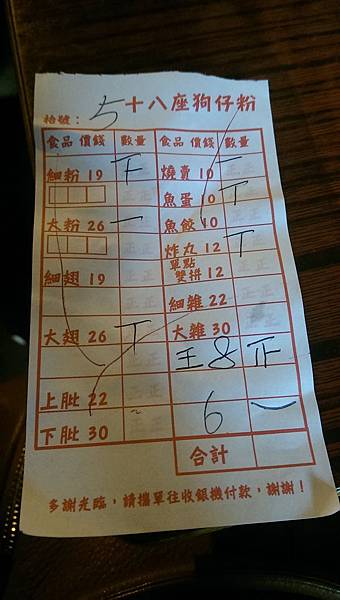 十八座狗仔粉
枱號： 5
食品 價錢 數量 食品 價錢 數量
細粉 19 燒賣 10 一
魚蛋 10 丅
大粉 26 一 魚餃 10
炸丸 12 丅
單點
雙拼 12
細翅 19
細雜 22
大翅 26 丅 大雜 30
王 8 正
上肶 22
6 一
下肶 30
合計
多謝光臨，請攜單往收銀機付款，謝謝！